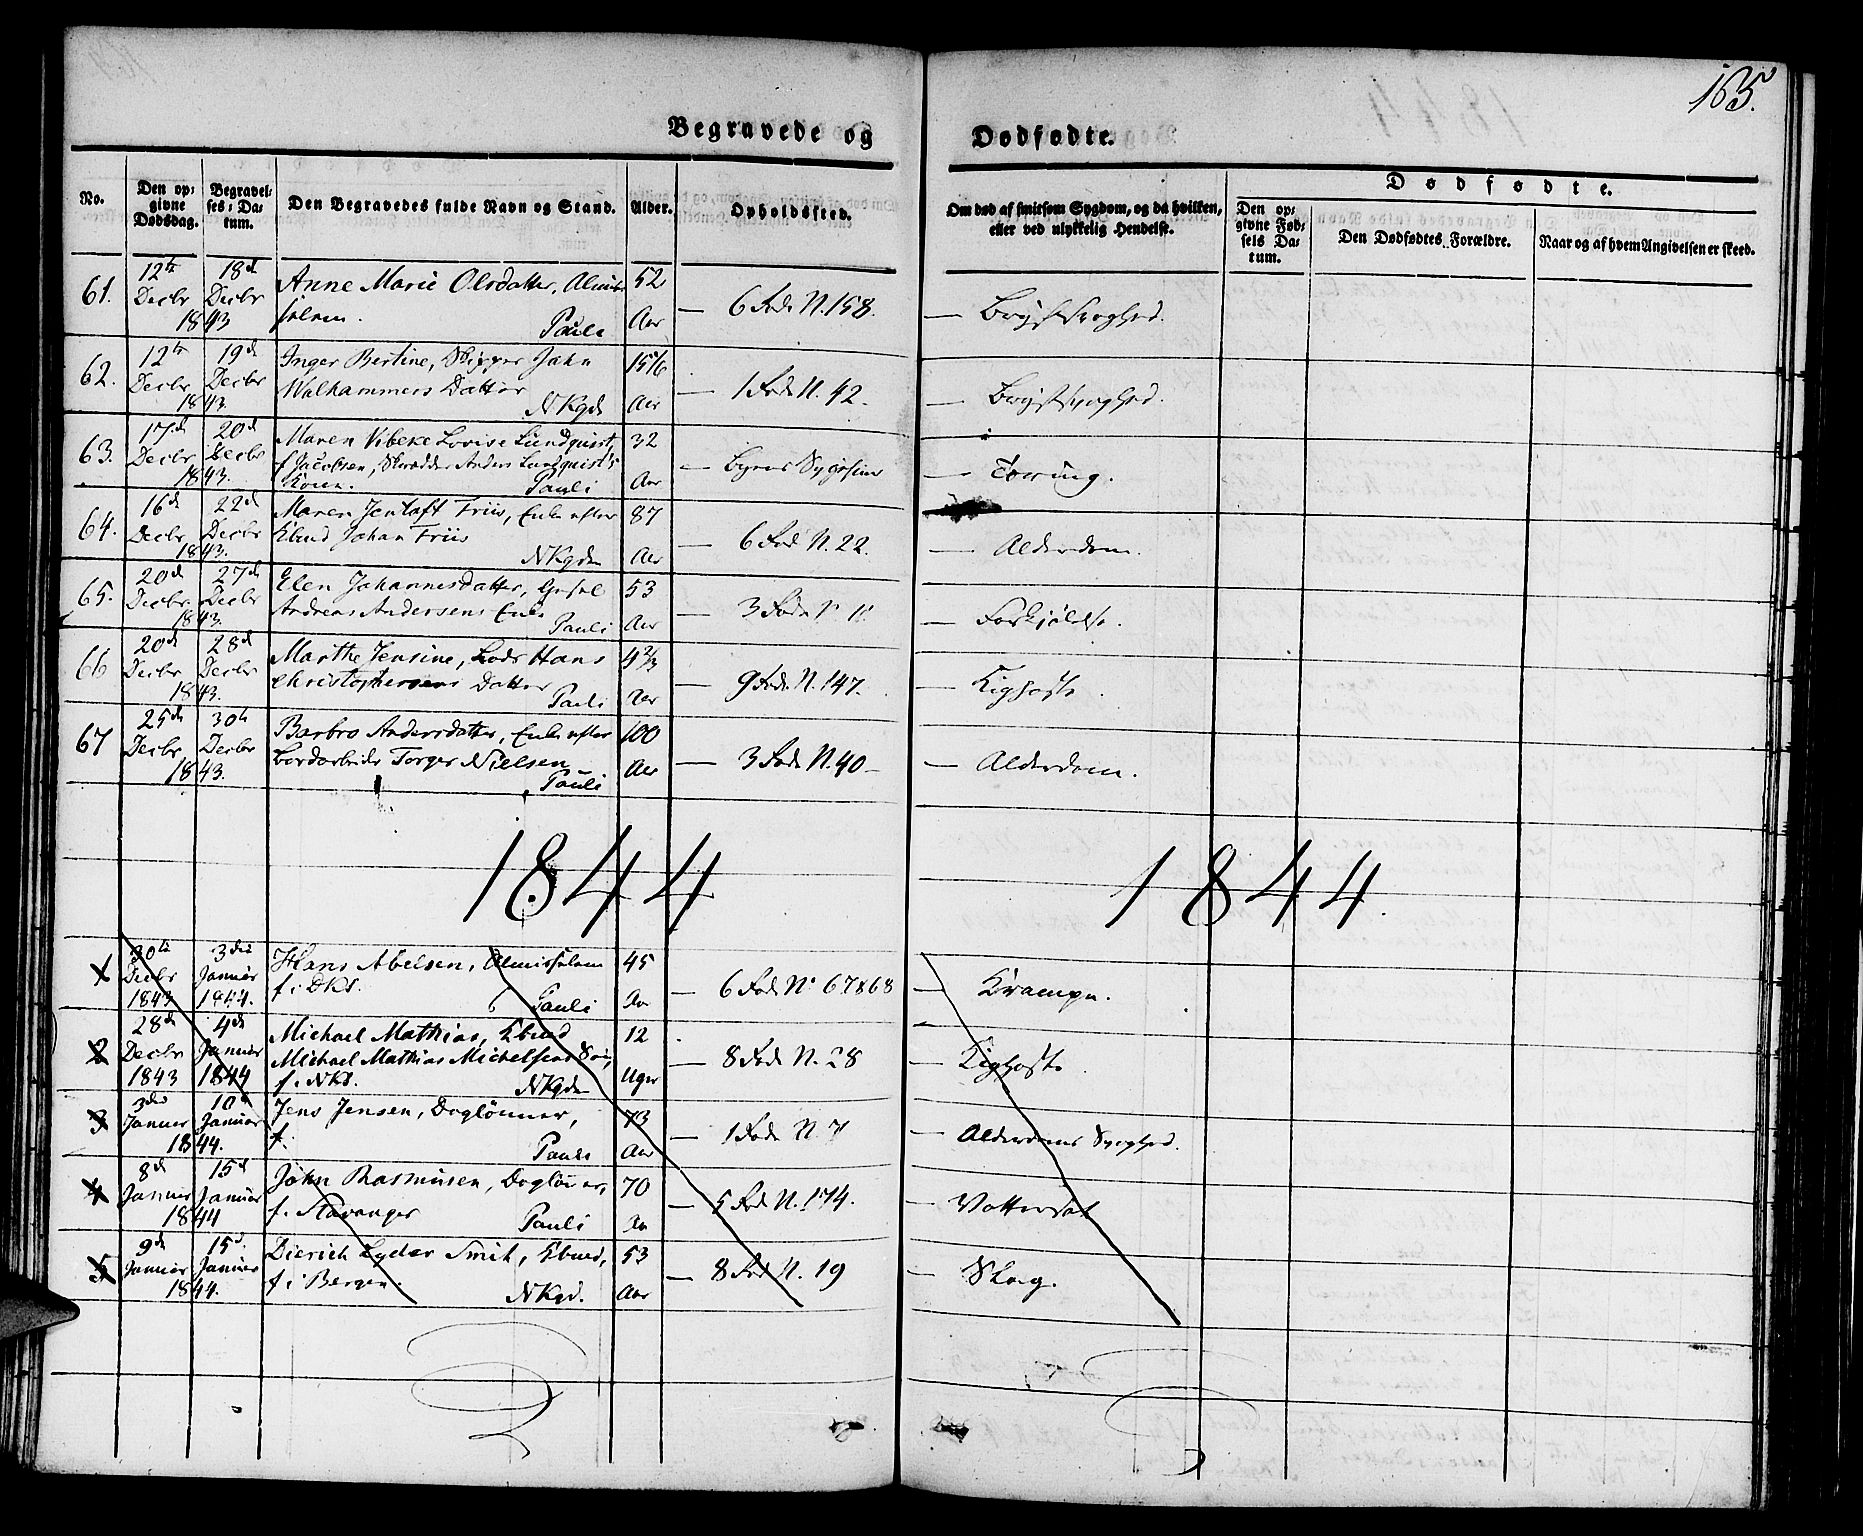 165.
Begravede og Dødfødte.
No.
Den opgivne Dødsdag.
Begravelses-Datum.
Den Begravedes fulde Navn og Stand.
Alder.
Opholdssted.
Om død af smitsom Sygdom, og da hvilken, eller ved ulykkelig Hendelse.
Dødfødte.
Den opgivne Fødsels Datum.
Den Dødfødtes Forældre.
Naar og af hvem Angivelsen er skeed.
61. 12te Decbr 18de Decbr 1843 Anne Marie Olsdatter, Almisselem. Pauli 52 Aar — 6 Rode N. 158. — Brystsvaghed.
62. 12te Decbr 19de Decbr 1843. Inger Bertine, Skipper Jahn Walhammers Datter NKgd 15 Aar — 1 Rode N. 42. — Brystsvaghed.
63. 17de Decbr 20de Decbr 1843. Maren Vibeke Lovise Lundquist, f. Jacobsen, Skrædder Anders Lundquist's Kone. Pauli 32 Aar — Byens Sygehuus — Tæring.
64. 16de Decbr 22de Decbr 1843. Maren Jentoft Friis, Enke efter Kbmd Johan Friis NKgden 87 Aar — 6 Rod N. 22. — Alderdom.
65. 20de Decbr 27de Decbr 1843. Elen Johannesdatter, Andreas Andersens Enke Pauli 53 Aar — 3 Rode — Forkjølelse.
66 20de Decbr 28de Decbr 1843. Marthe Jensine, Lods Hans Christophersens Datter Pauli 4 2/3 Aar — 9 Rode N. 147. — Kighoste.
67 25de Decbr 30te Decbr 1843. Barbro Andersdatter, Enke efter Bordarbeider Torger Nielsen Pauli 100 Aar — 3 Rode N. 40 — Alderdom.
1844 1844.
1 30te Decbr 1843 3die Januar 1844. Hans Abelsen, Almisselem f. i DKS. Pauli 45 Aar — 6 Rode No 67&68 — Krampe.
2 28de Decbr 1843 4de Januar 1844 Michael Mathias, Kbmd Michael Mathias Michelsens Søn, f. NKS. NKgden 12 Uger — 8 Rode N. 28 — Kighoste
3 3die Januar 10de Januar 1844. Jens Jensen, Daglønner, f. Pauli 73 Aar — 1 Rode N. 7 — Alderdoms Svaghed.
4 8de Januar 15de Januar 1844 John Rasmusen, Dagløner, f. Stavanger Pauli 70 Aar — 5 Rod N. 174. — Vattersot
5 9de Januar 15de Januar 1844. Dierich Lyder Smit, Kbmd, f. i Bergen. NKgd. 53 Aar — 8 Rod N. 19 — Slag.